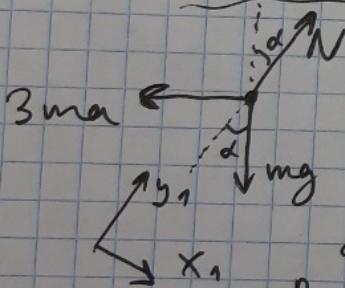 α
N
3ma
α
mg
y₁
x₁